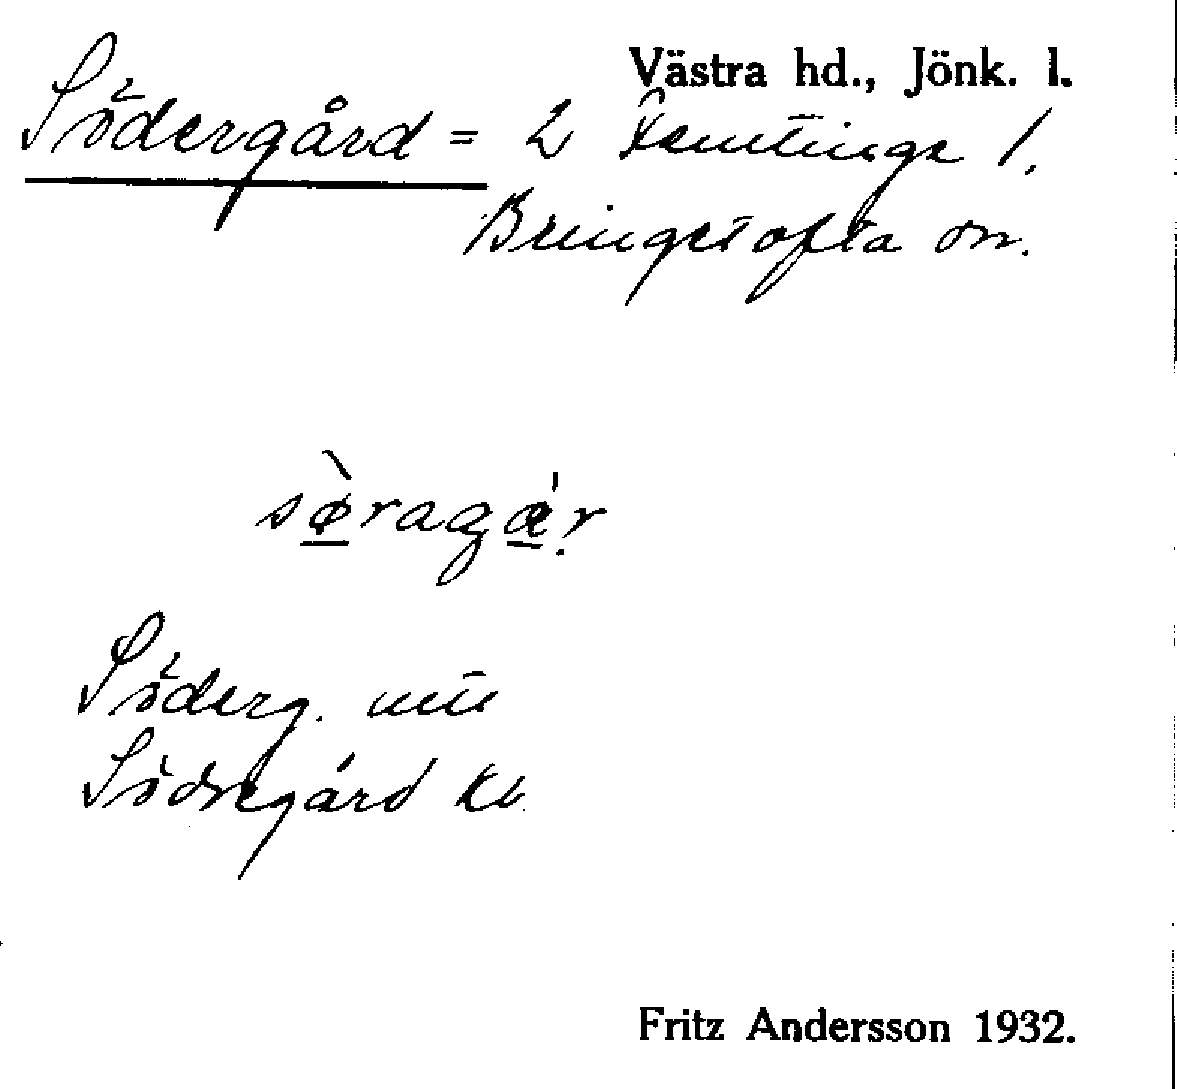 Västra hd., Jönk. l.
Södergård = 2 Femtinge 1.
Bringetofta sn.
sø̀ragǽr
Söderg. mtl
Södregård kb
Fritz Andersson 1932.